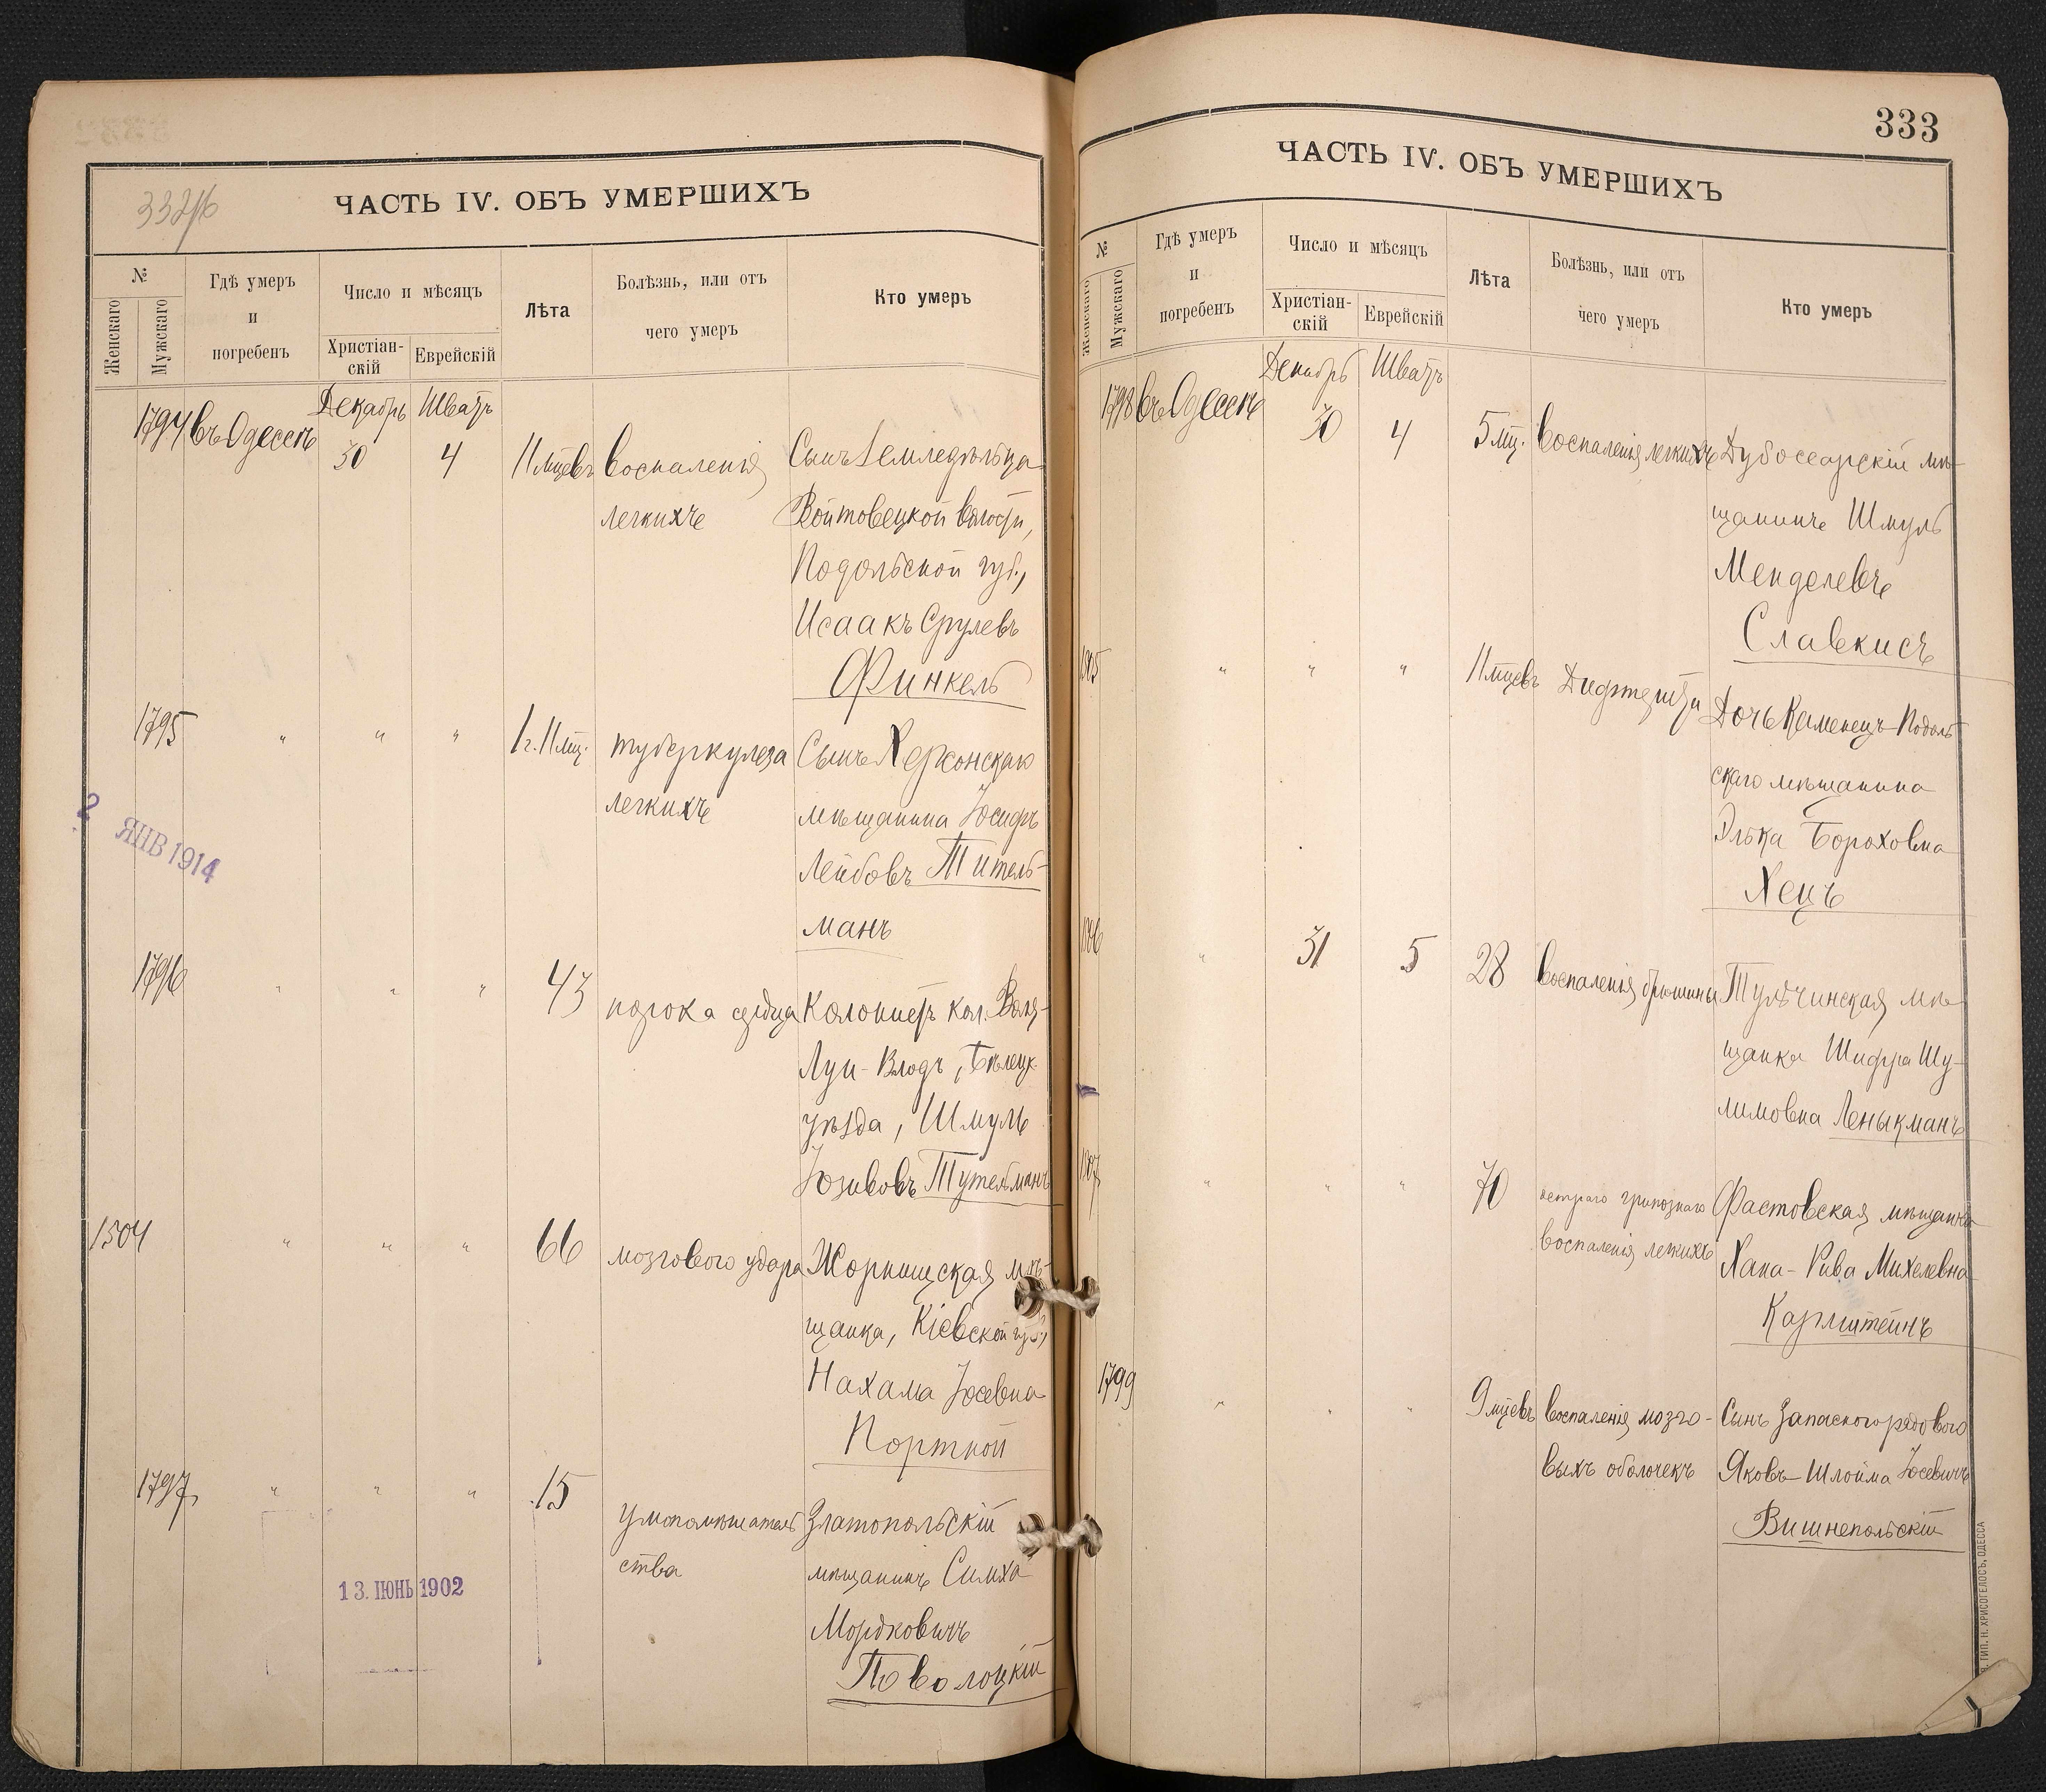 332/б
ЧАСТЬ IV. ОБЪ УМЕРШИХЪ
№
Женскаго
Мужскаго
Гдѣ умеръ
и
погребенъ
Число и мѣсяцъ
Христіан-
скій
Еврейскій
Лѣта
Болѣзнь, или отъ
чего умеръ
Кто умеръ
Декабрь Шватъ
1794 въ Одессѣ 30 4 11 мцевъ воспаленія Сынъ Земледѣльца
легкихъ Войтовецкой волости,
Подольской губ.,
Исаакъ Срулевъ
Финкель
1795 " " " 1 г. 11 мц. туберкулеза Сынъ Херсонскаго
легкихъ мѣщанина Іосифъ
Лейбовъ Титель-
манъ
2 ЯНВ 1914
1796 " " " 43 порока сердца Колонистъ кол.
Луи-Влодъ, Бѣлецк.
уѣзда, Шмуль
Іозиповъ Тутельманъ
1504 " " " 66 мозгового удара Жорнищская мѣ-
щанка, Кіевской губ.,
Нахама Іосевна
Портной
1797 " " " 15 умопомѣшатель Златопольскій
ства мѣщанинъ Симха
Мордковичъ
Поволоцкій
13. ІЮНЬ 1902
333
ЧАСТЬ IV. ОБЪ УМЕРШИХЪ
№
Женскаго
Мужскаго
Гдѣ умеръ
и
погребенъ
Число и мѣсяцъ
Христіан-
скій
Еврейскій
Лѣта
Болѣзнь, или отъ
чего умеръ
Кто умеръ
Декабрь Шватъ
1798 въ Одессѣ 30 4 5 мц. воспаленія легкихъ Дубоссарскій мѣ-
щанинъ Шмуль
Менделевъ
Славкисъ
1505 " " " 11 мцевъ Дифтерита Дочь Каменецъ-Подоль
скаго мѣщанина
Элька Бороховна
Хецъ
1506 " 31 5 28 воспаленія брюшины Тульчинская мѣ
щанка Шифра Шу-
лимовна
1507 " " " 70 остраго грипознаго Фастовская мѣщанка
воспаленія легкихъ Хана-Рива Михелевна
Карпштейнъ
1799 " " " 9 мцевъ воспаленія мозго- Сынъ Запаснаго рядового
выхъ оболочекъ Яковъ-Шлойма Іосевичъ
Вишнепольскій
ТИП. Н. ХРИСОГЕЛОСЪ, ОДЕССА